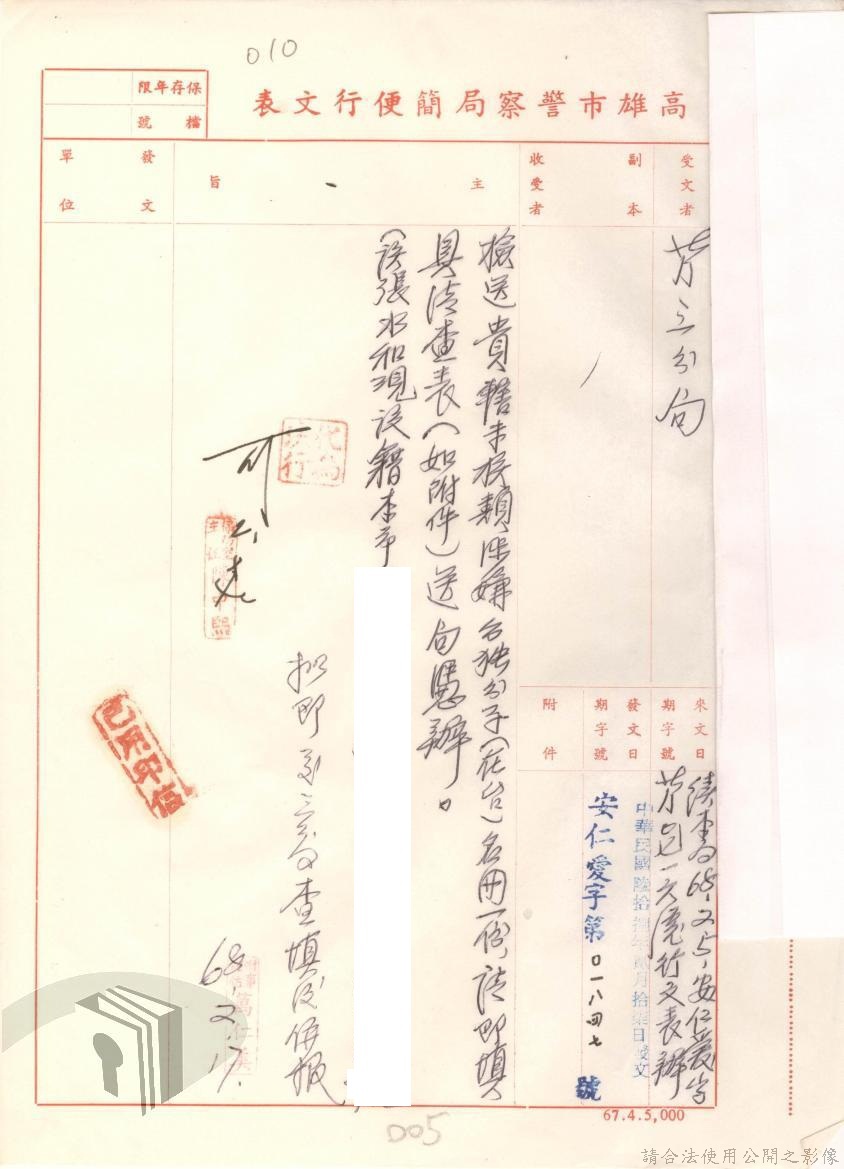 010
高雄市警察局簡便行文表
保存年限
檔號
受文者
副本收受者
主旨
發文單位
苓三分局
檢送貴轄未核類涉嫌台独分子(在台)名冊一份,請即填
具清查表(如附件)送局憑辦。
(该張水和現設籍本市
來文日期字號
發文日期字號
附件
中華民國陸拾捌年貳月拾柒日發文
安仁愛字第0一八四七號
可
代為決行
已用印信
擬即至三分局查填後併報
68.2.17.
67.4.5,000
005
請合法使用公開之影像